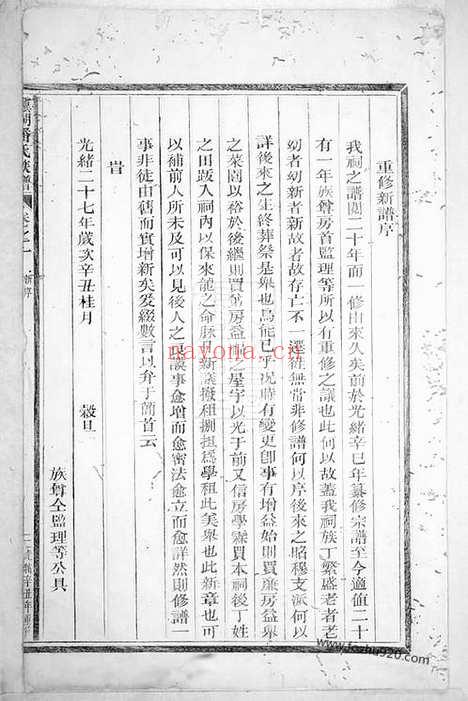 重修新譜序
我祠之譜閱二十年而一修由來久矣前於光緒辛巳年纂修宗譜至今適值二十
有一年族尊房首監理等所以有重修之議也此何以故蓋我祠族丁繁盛老者老
幼者幼新者新故者故存亡不一遷徙無常非修譜何以序後來之昭穆支派何以
詳後來之生終葬祭是舉也烏能已乎况時有變更卽事有增益始則買廉房益舉
之菜園以裕於後繼則買房益之屋宇以光于前又信房學憲買本祠後丁姓
之田畈入祠內以保來龍之命脉且新議撥租捌担爲學租此美舉也此新章也可
以補前人所未及可以見後人之良謨事愈增而愈密法愈立而愈詳然則修譜一
事非徒由舊而實增新矣爰綴數言以弁于簡首云
旹
光緒二十七年歲次辛丑桂月 穀旦
族尊仝監理等公具
氏族譜 卷之一 新序
nayona.cn
www.fozhu920.com